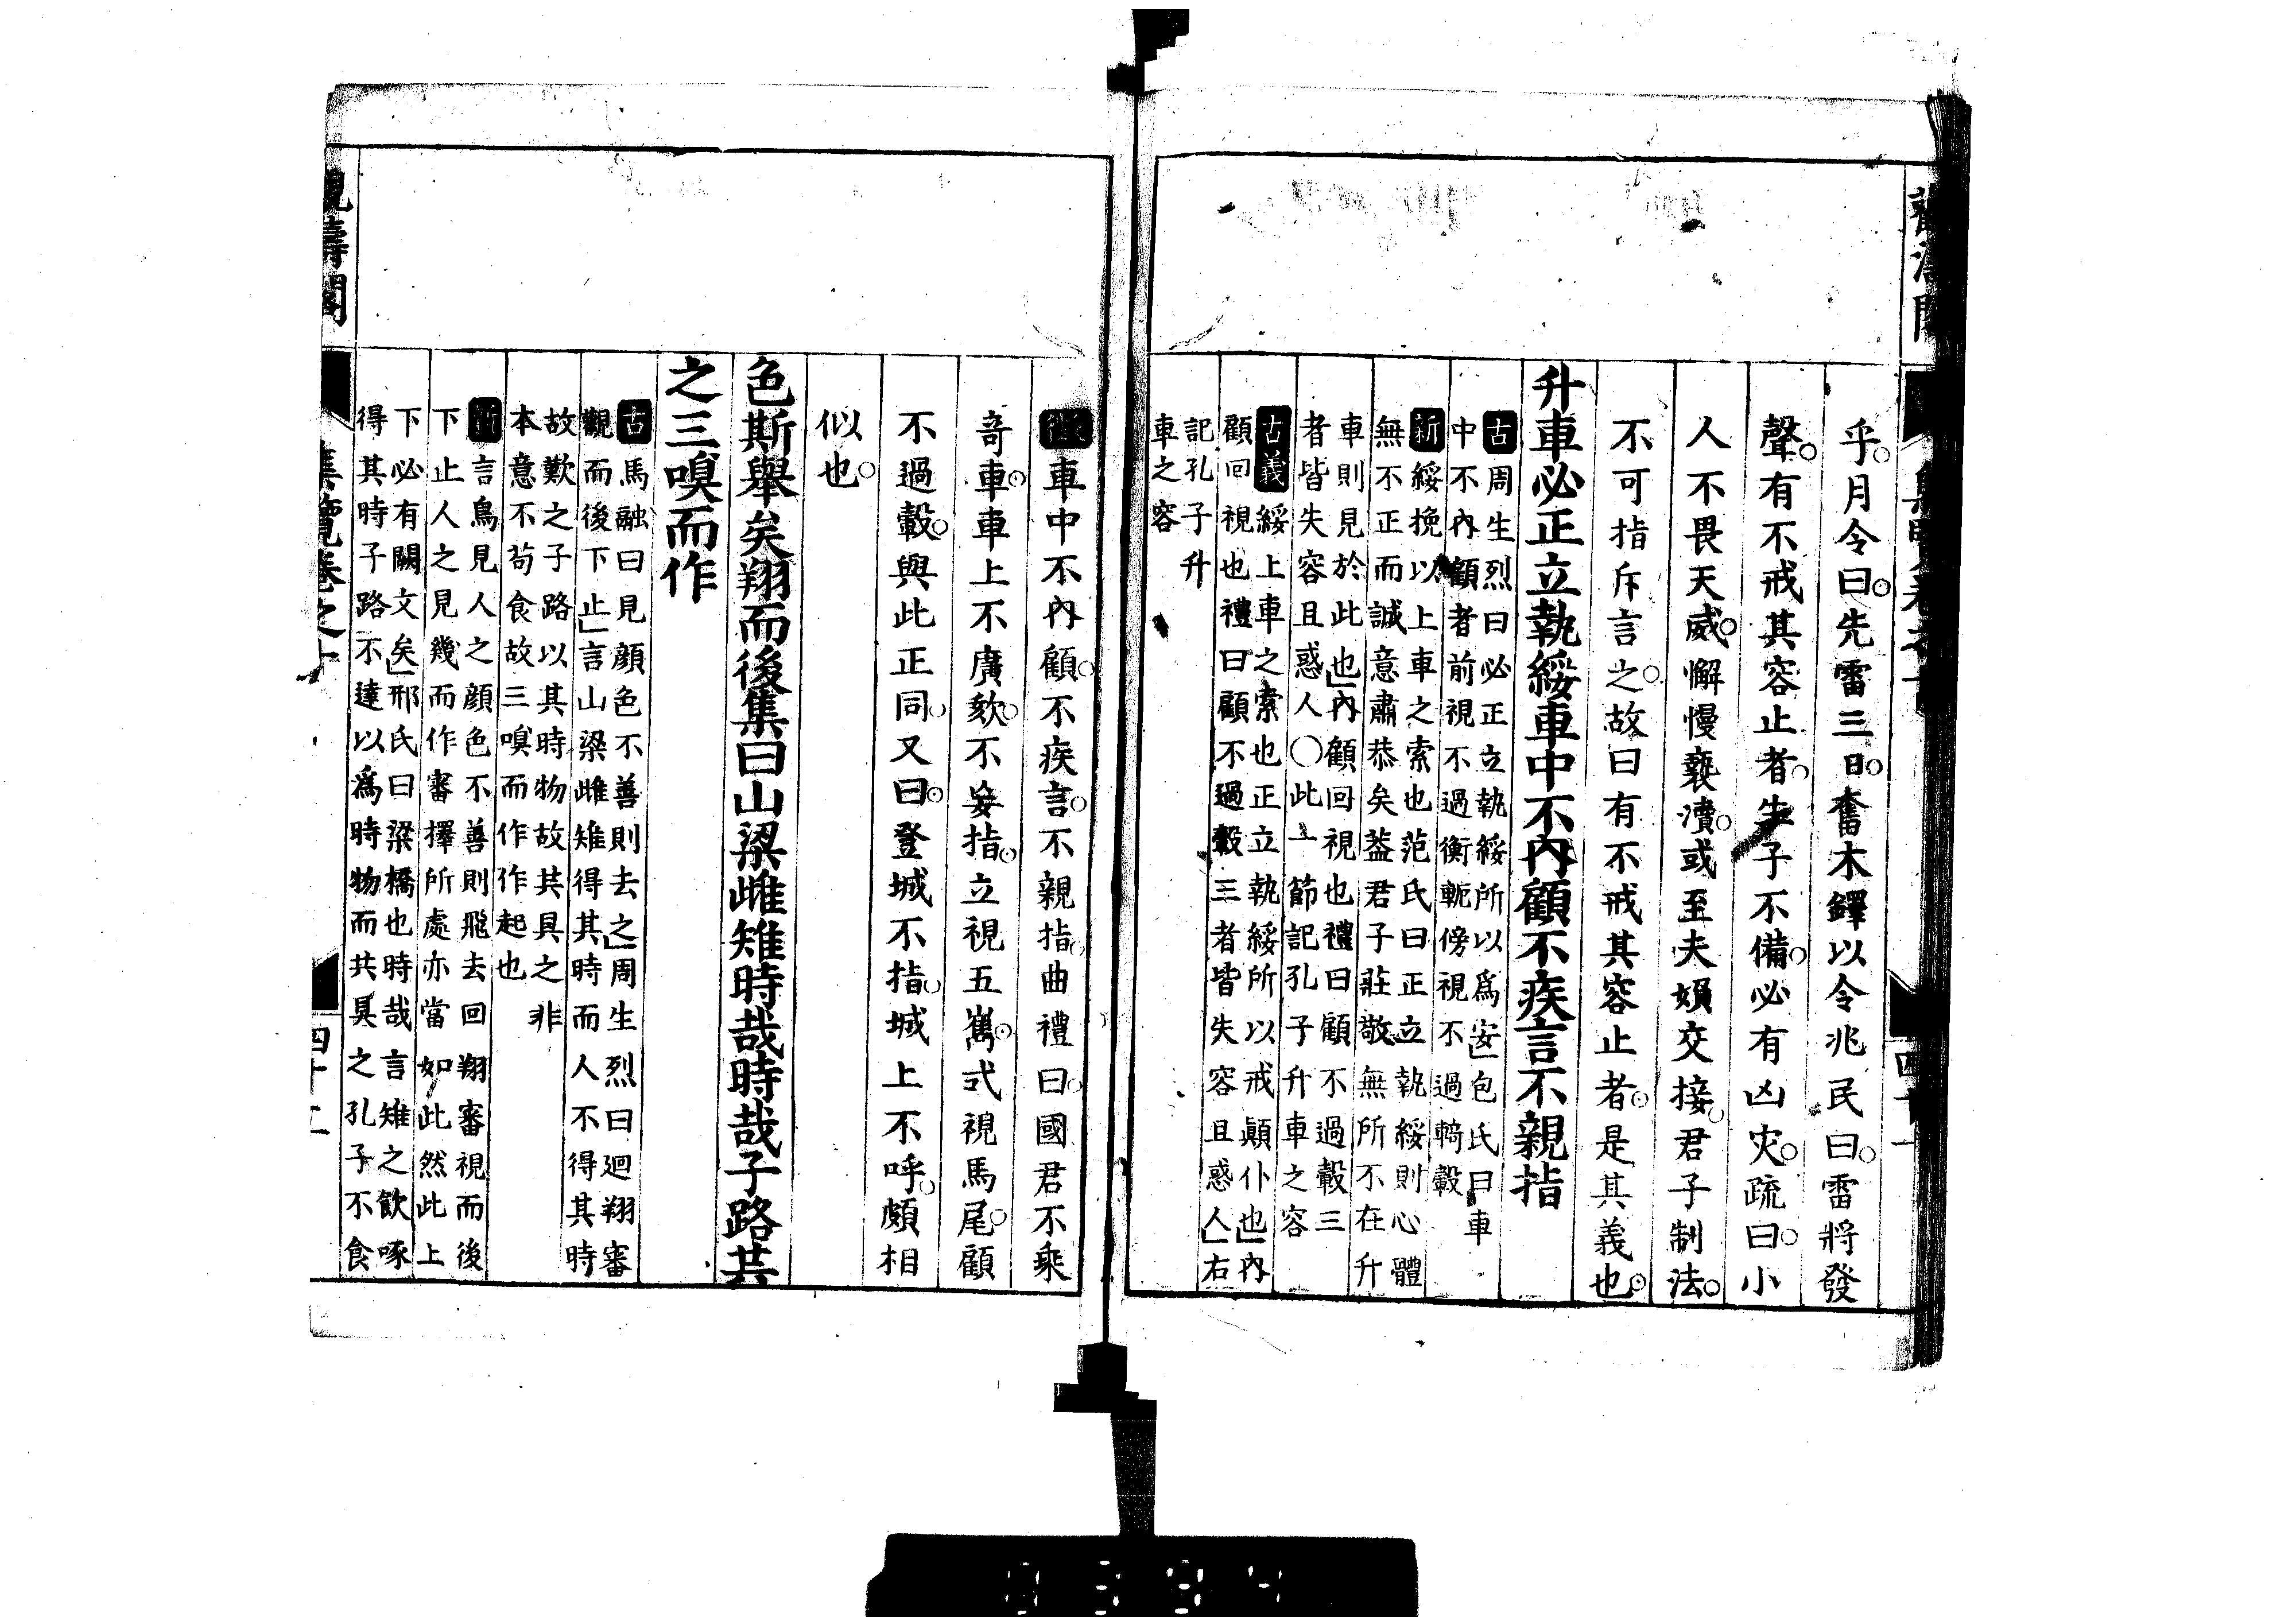 乎月令曰先雷三日奮木鐸以令兆民曰雷將發
聲有不戒其容止者生子不備必有凶灾疏曰小
人不畏天威懈慢褻瀆或至夫婦交接君子制法
不可指斥言之故曰有不戒其容止者是其義也
升車必正立執綏車中不內顧不疾言不親指
古周生烈曰必正立執綏所以爲安包氏曰車
中不內顧者前視不過衡軛傍視不過輢轂
新綏挽以上車之索也范氏曰正立執綏則心體
無不正而誠意肅恭矣葢君子莊敬無所不在升
車則見於此也內顧回視也禮曰顧不過轂三
者皆失容且惑人〇此一節記孔子升車之容
古義綏上車之索也正立執綏所以戒顛仆也內
顧回視也禮曰顧不過轂三者皆失容且惑人右
記孔子升
車之容
徵車中不內顧不疾言不親指曲禮曰國君不乘
奇車車上不廣欬不妄指立視五嶲式視馬尾顧
不過轂與此正同又曰登城不指城上不呼頗相
似也
色斯舉矣翔而後集曰山梁雌雉時哉時哉子路共
之三嗅而作
古馬融曰見顏色不善則去之周生烈曰迴翔審
觀而後下止言山梁雌雉得其時而人不得其時
故歎之子路以其時物故共具之非
本意不苟食故三嗅而作作起也
新言鳥見人之顏色不善則飛去回翔審視而後
下止人之見幾而作審擇所處亦當如此然此上
下必有闕文矣邢氏曰梁橋也時哉言雉之飲啄
得其時子路不達以爲時物而共具之孔子不食
集覽卷之十
四十二